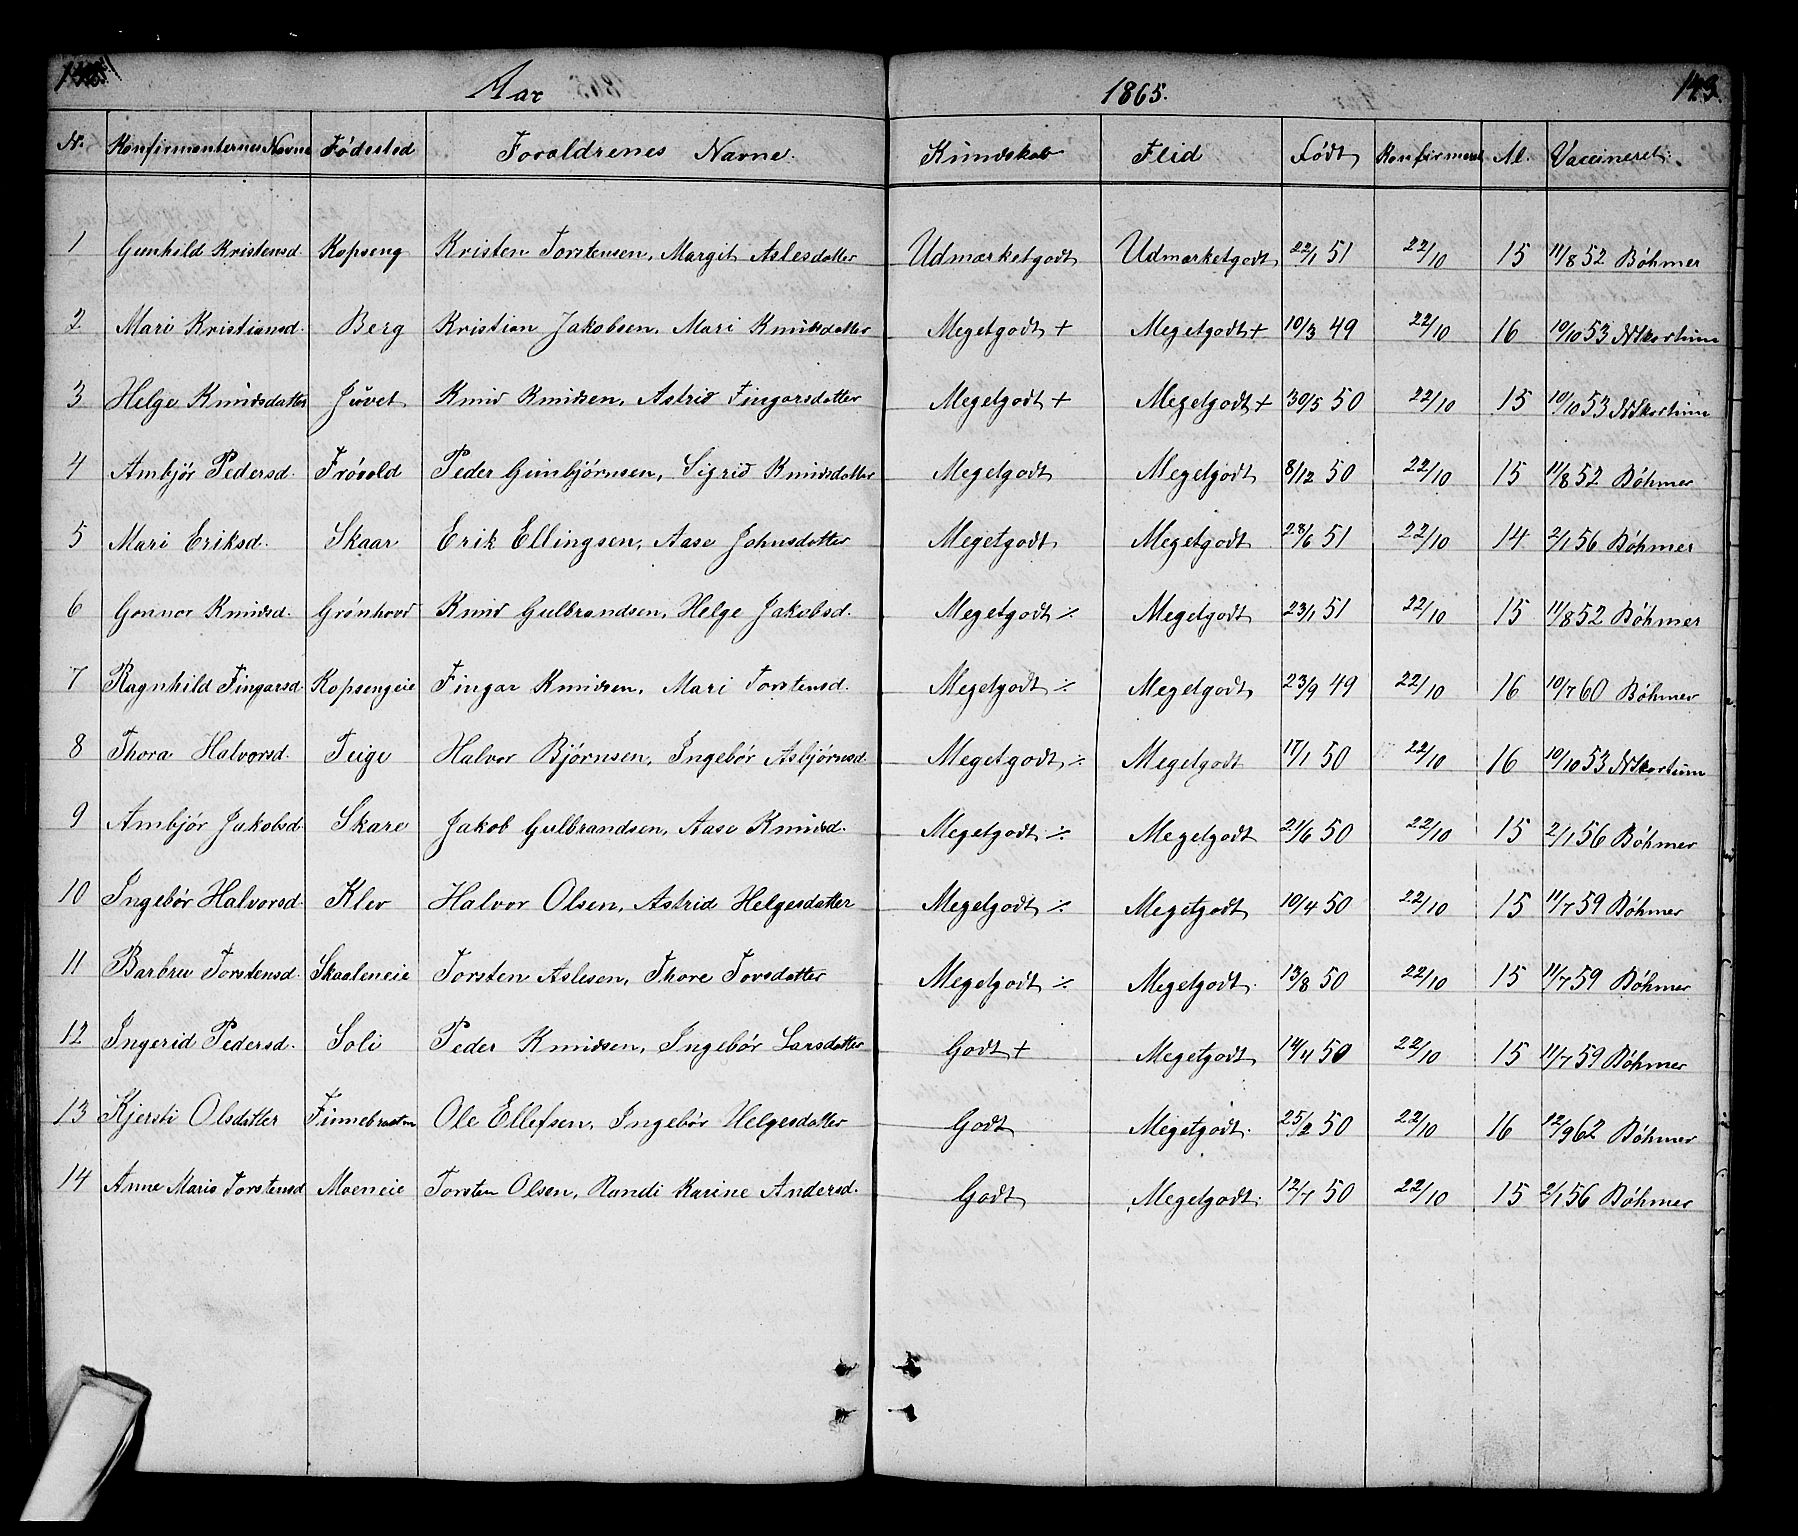 Aar 1865. 143.
No. Konfirmanternes Navne Fødested Foraldrenes Navne. Kundskab Flid Født Konfirmeret Al. Vaccineret.
1 Gunhild Kristensd. Kopseng Kristen Torstensen, Margit Aslesdatter Udmarketgodt Udmarketgodt 22/1 51 22/10 15 11/8 52 Bøhmer
2 Mari Kristiansd. Berg Kristian Jakobsen, Mari Knutsdatter Megetgodt + Megetgodt + 10/3 49 22/10 16 10/10 53 N Skortum
3 Helge Knudsdatter Juvet Knud Knudsen, Astrid Fingarsdatter Megetgodt + Megetgodt + 30/5 50 22/10 15 10/10 53 N Skortum
4 Ambjør Pedersd. Frövold Peder Gunbjørnsen, Sigrid Knudsdatter Megetgodt Megetgodt 8/12 50 22/10 15 11/8 52 Bøhmer
5 Mari Eriksd. Skaar Erik Ellingsen, Aase Johnsdatter Megetgodt Megetgodt 28/6 51 22/10 14 2/1 56 Bøhmer
6 Gonnor Knudsd. Grønhovd Knud Gulbrandsen, Helge Jakobsd. Megetgodt ⁒ Megetgodt 23/1 51 22/10 15 11/8 52 Bøhmer
7 Ragnhild Fingarsd. Kopsengeie Fingar Knudsen, Mari Torstensd. Megetgodt ⁒ Megetgodt 23/9 49 22/10 16 10/7 60 Bøhmer
8 Thora Halvorsd. Teige Halvor Bjørnsen, Ingebør Asbjørnsd. Megetgodt ⁒ Megetgodt 17/1 50 22/10 16 10/10 53 N Skortum
9 Ambjör Jakobsd. Skare Jakob Gulbrandsen, Aase Knudsd. Megetgodt ⁒ Megetgodt 21/6 50 22/10 15 2/1 56 Bøhmer
10 Ingebør Halvorsd. Klev Halvor Olsen, Astrid Helgesdatter Megetgodt ⁒ Megetgodt 10/4 50 22/10 15 11/7 59 Bøhmer
11 Barbru Torstensd. Skaaleneie Torsten Aslesen, Thore Torsdatter Megetgodt ⁒ Megetgodt. 13/8 50 22/10 15 11/7 59 Bøhmer
12 Ingerid Pedersd. Soli Peder Knudsen, Ingebør Larsdatter Godt + Megetgodt 14/4 50 22/10 15 11/7 59 Bøhmer
13 Kjersti Olsdatter Ole Ellefsen, Ingebør Helgesdatter Godt Megetgodt. 25/2 50 22/10 16 12/9 62 Bøhmer
14 Anne Marie Torstensd Moeneie Torsten Olsen, Randi Karine Andersd. Godt Megetgodt. 12/7 50 22/10 15 2/1 56 Bøhmer